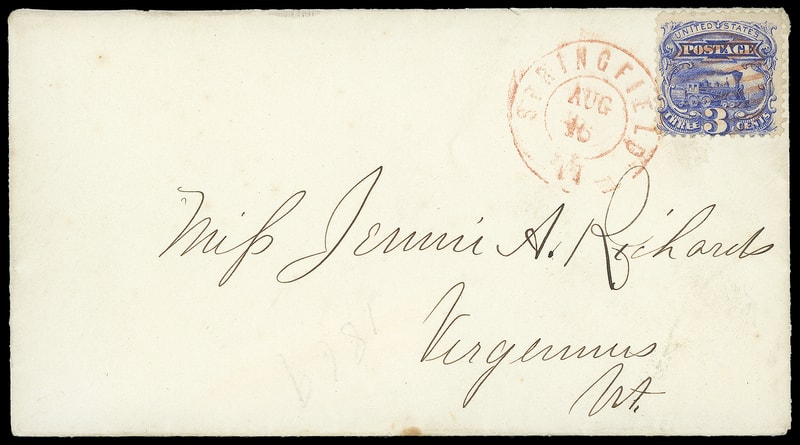 UNITED STATES
POSTAGE
THREE 3 CENTS
SPRINGFIELD
AUG
16
Miſs Jennie A. Richards
Vergennes
Vt.